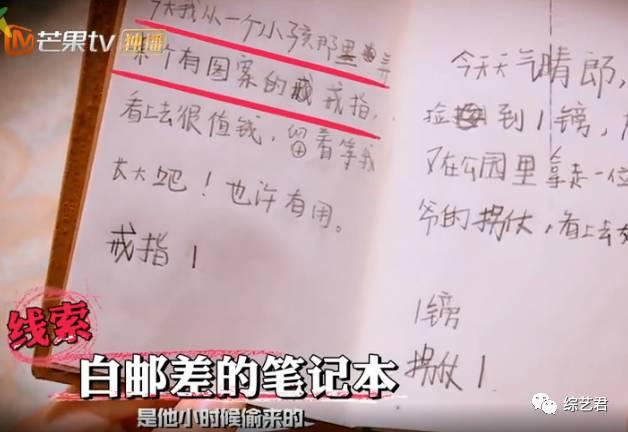 芒果tv 独播
今天我从一个小孩那里弄
来个有图案的戒指,
看上去很值钱,留着等我
长大吧!也许有用。
戒指 1
今天天气晴郎,
捡到1镑,
又在公园里拿走一位
爷的拐杖,看上去
1镑
拐杖 1
线索
白邮差的笔记本
是他小时候偷来的
综艺君